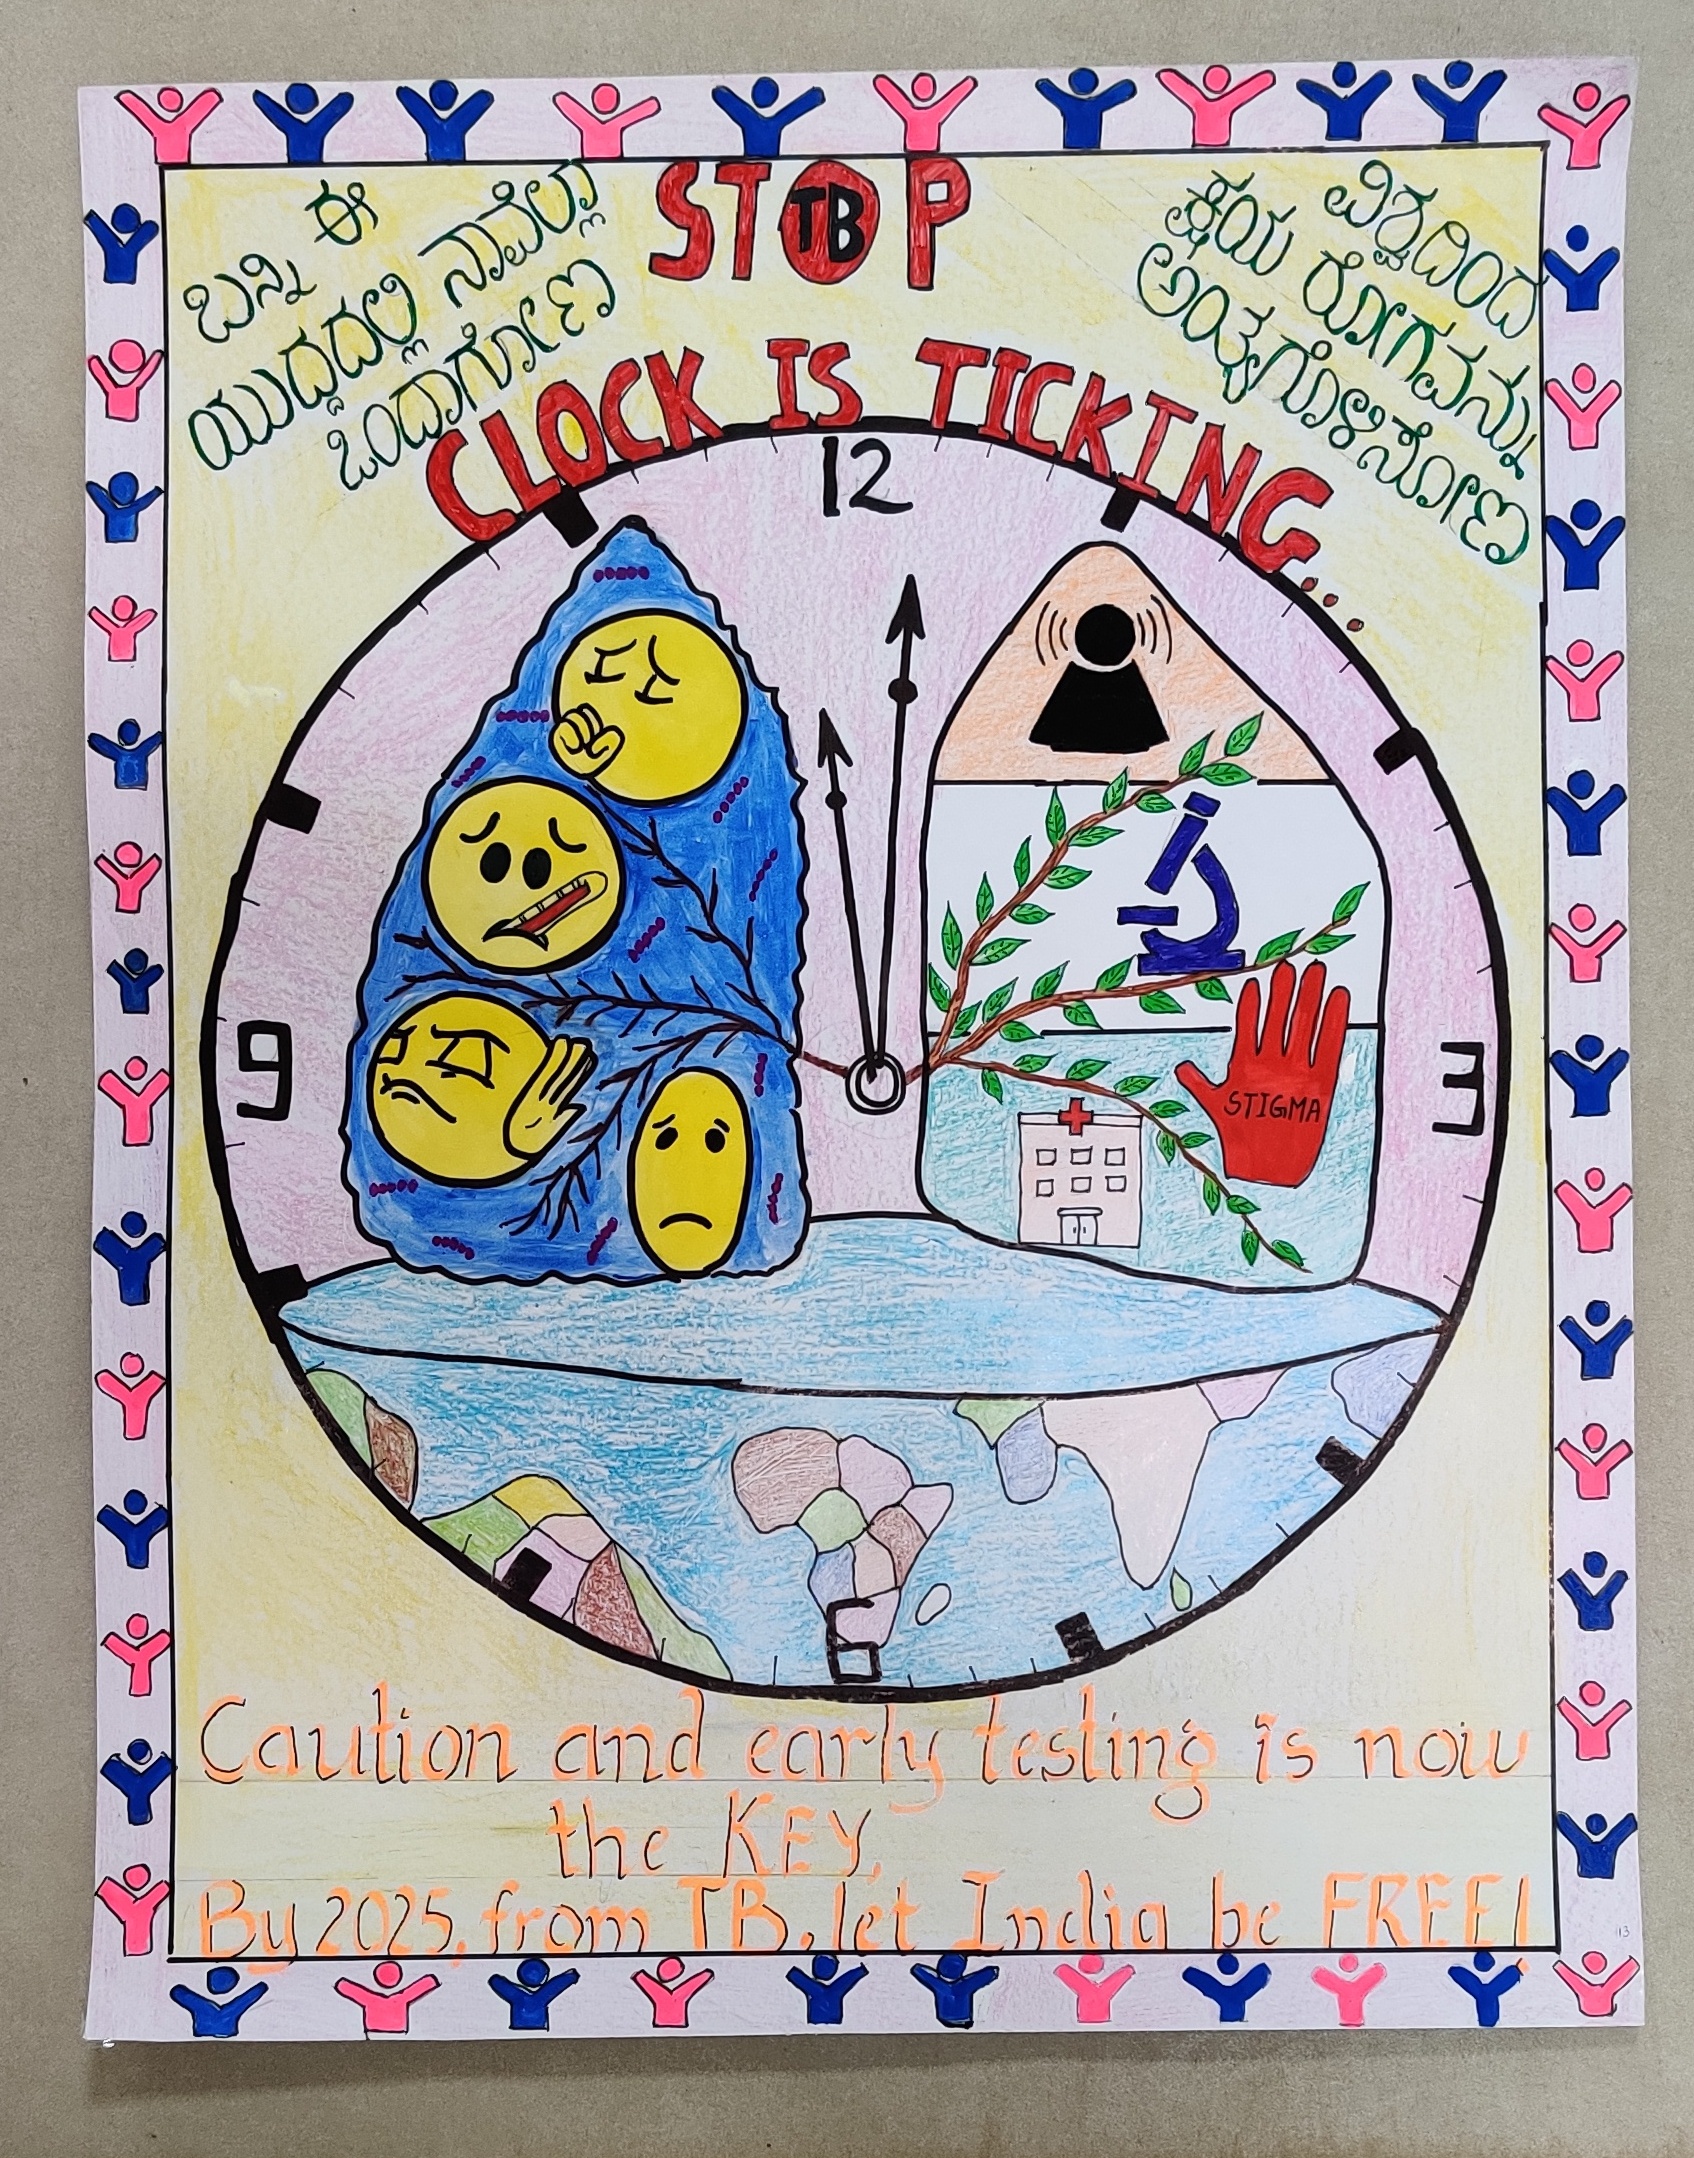 STOP
TB
ಬನ್ನಿ ಈ
ಯುದ್ಧದಲ್ಲಿ ನಾವೆಲ್ಲಾ
ಒಂದಾಗೋಣ
ವಿಶ್ವದಿಂದ
ಕ್ಷಯ ರೋಗವನ್ನು
ಅಂತ್ಯಗೊಳಿಸೋಣ
CLOCK IS TICKING...
12
9
3
STIGMA
6
Caution and early testing is now
the KEY.
By 2025, from TB, let India be FREE!
113